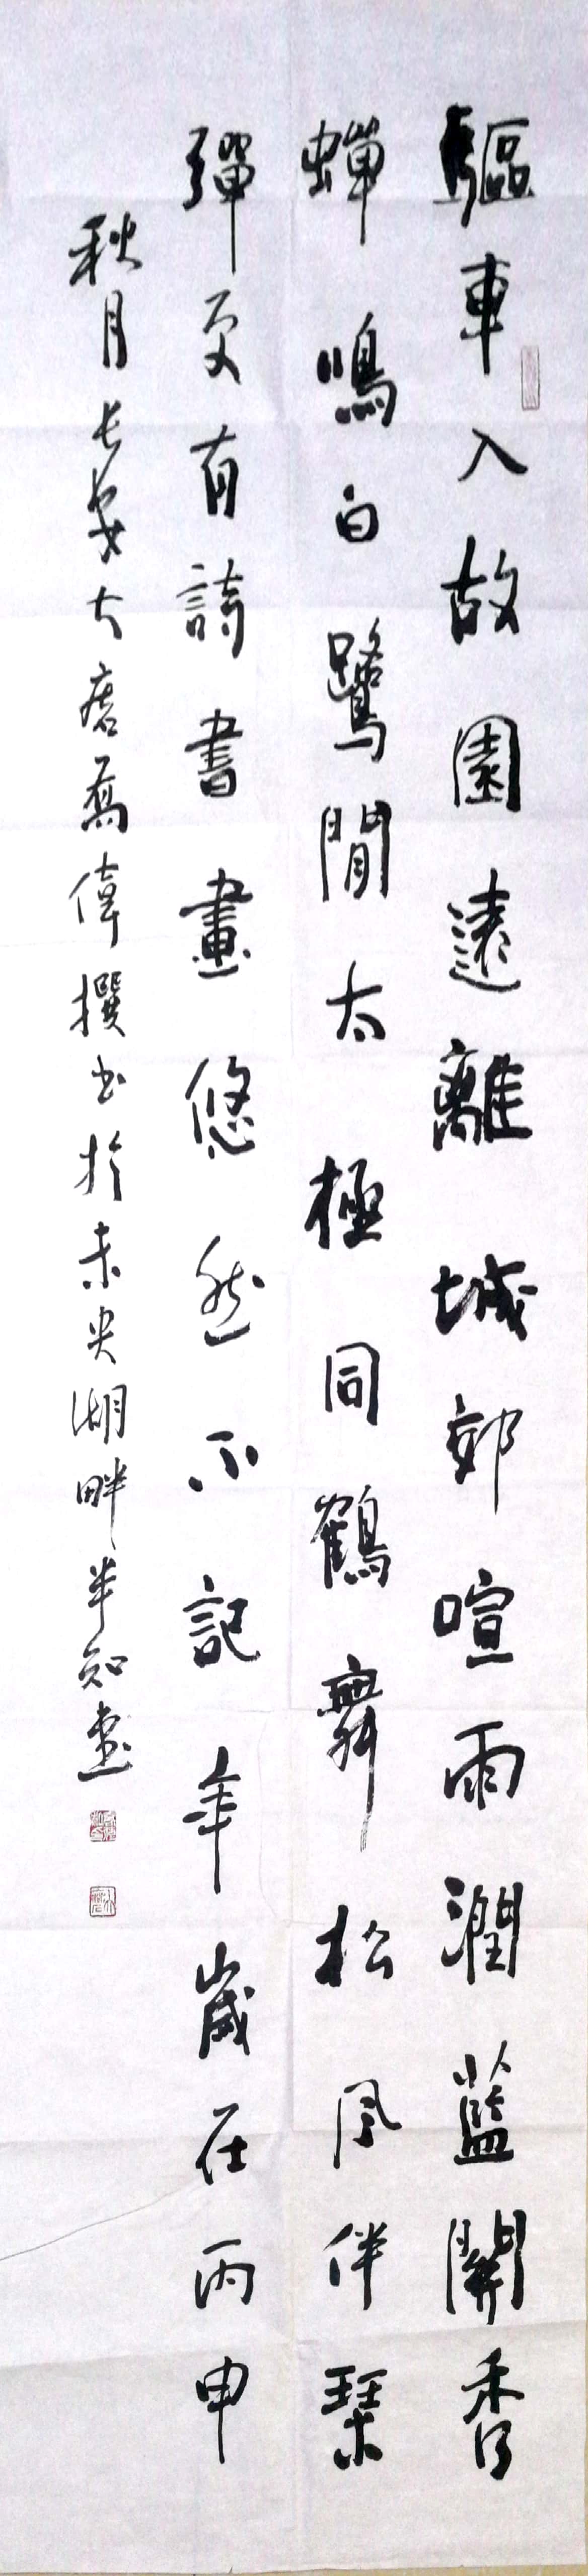 驅車入故園遠離城郊喧雨潤藍開香
蟬鳴白鷺閒太極同鶴舞松風伴琹
彈更有詩書畫悠然不記年歲在丙申
秋月长安大唐喬偉撰书於未央湖畔半知